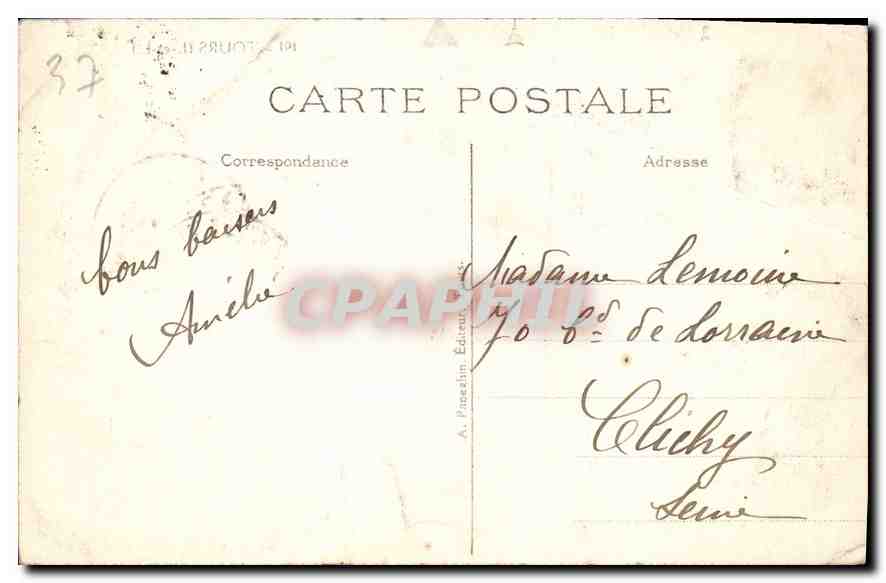 37
CARTE POSTALE
Correspondance
Adresse
bons baisers
Amélie
Madame Lemoine
70 Bd de Lorraine
Clichy
Seine
A. Papeghin, Éditeur,
CPAPHIL